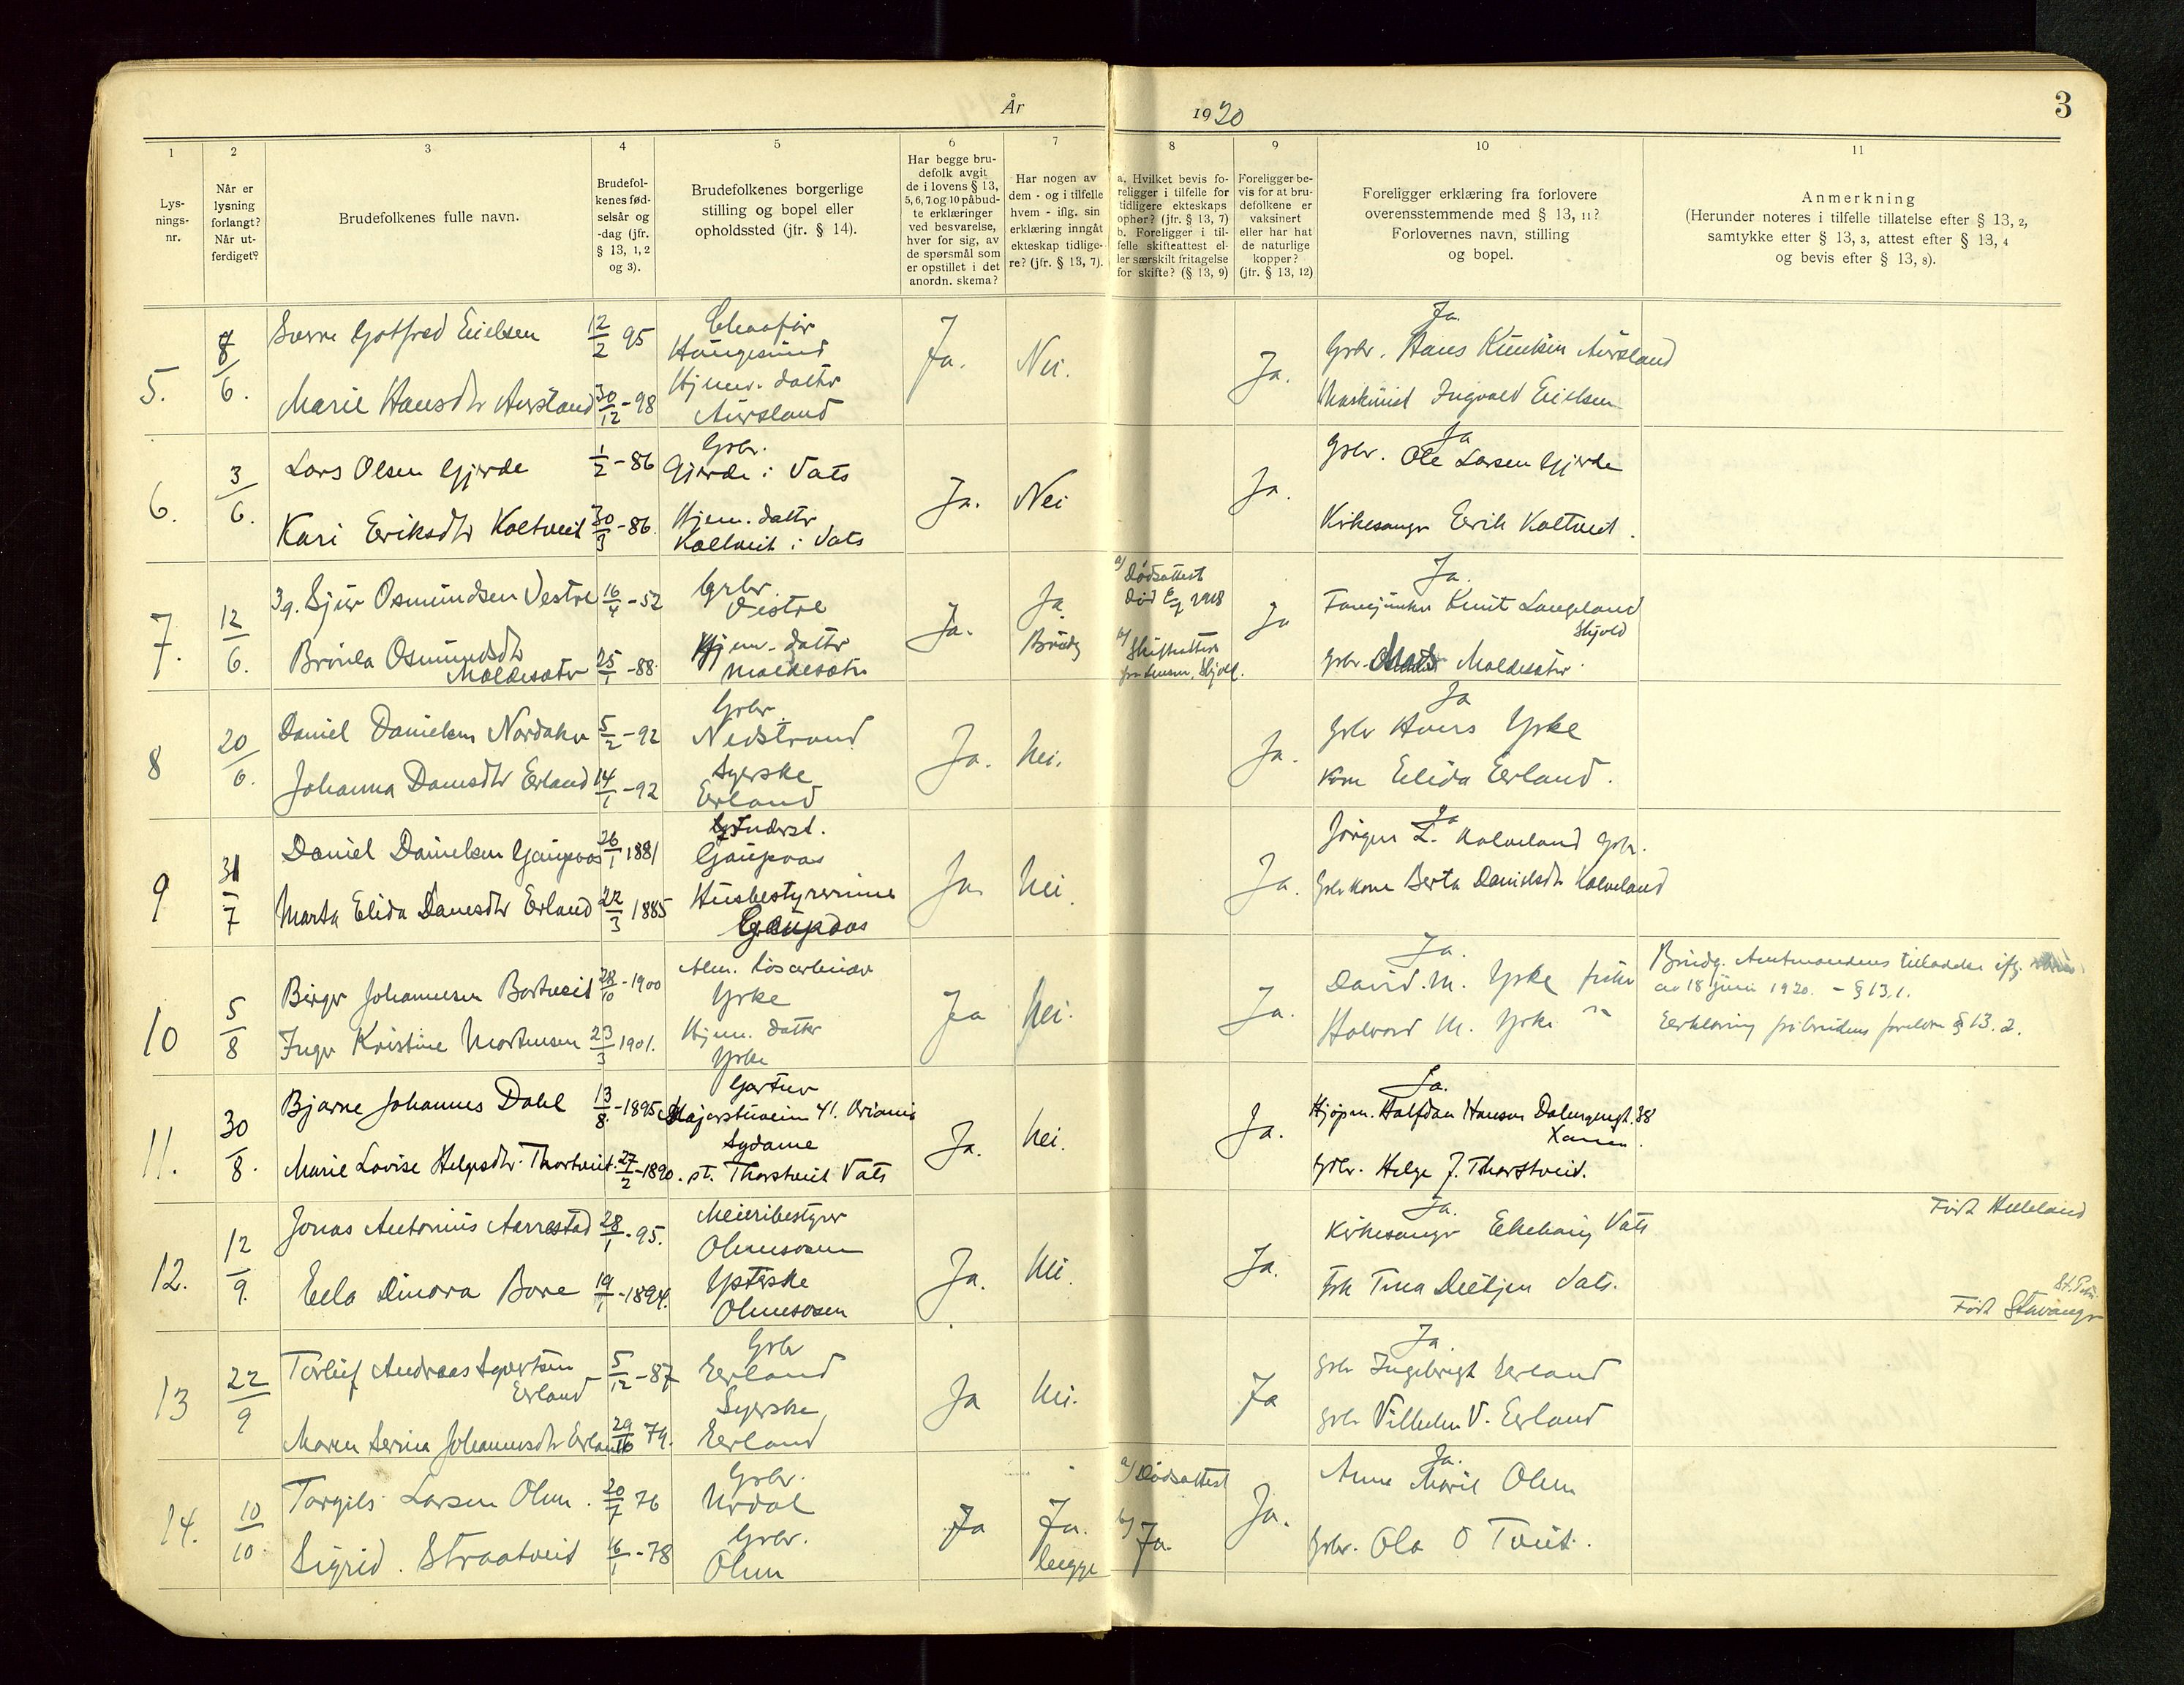 År 1920
3
1
2
3
4
5
6
7
8
9
10
11
Lys-
nings-
nr.
Når er
lysning
forlangt?
Når ut-
ferdiget?
Brudefolkenes fulle navn.
Brudefol-
kenes fød-
selsår og
-dag (jfr.
§ 13, 1, 2
og 3).
Brudefolkenes borgerlige
stilling og bopel eller
opholdssted (jfr. § 14).
Har begge bru-
defolk avgit
de i lovens § 13,
5, 6, 7 og 10 påbud-
te erklæringer
ved besvarelse,
hver for sig, av
de spørsmål som
er opstillet i det
anordn. skema?
Har nogen av
dem - og i tilfelle
hvem - iflg. sin
erklæring inngåt
ekteskap tidlige-
re? (jfr. § 13, 7).
a. Hvilket bevis fo-
religger i tilfelle for
tidligere ekteskaps
ophør? (jfr. § 13, 7)
b. Foreligger i til-
felle skifteattest el-
ler særskilt fritagelse
for skifte? (§ 13, 9)
Foreligger be-
vis for at bru-
defolkene er
vaksinert
eller har hat
de naturlige
kopper?
(jfr. § 13, 12)
Foreligger erklæring fra forlovere
overensstemmende med § 13, 11?
Forlovernes navn, stilling
og bopel.
Anmerkning
(Herunder noteres i tilfelle tillatelse efter § 13, 2,
samtykke efter § 13, 3, attest efter § 13, 4
og bevis efter § 13, 8).
5.
6.
Sverre Gotfred Eielsen
12/2 95
Haugesund
Marie Hansdtr Aursland
30/12-98
Hjemv. datter
Aursland
Ja.
Nei.
Ja.
Ja.
Grbr. Hans Knutsen Aursland
Maskinist Ingvald Eielsen
6.
3/6.
Lars Olsen Gjerde
1/2-86
Grbr.
Gjerde i Vats
Kari Eriksdtr Koltveit
30/3-86
Hjem. datter
Koltveit i Vats
Ja.
Nei
Ja.
Ja
Grbr. Ole Larsen Gjerde
Kirkesanger Eerik Koltveit.
7.
12/6.
Sjur Osmundsen Vestre
16/4-52
Grbr.
Vestre
Osmundsdtr
Moldesæter
25/1-88
Hjem. datter
Moldesæter
Ja.
Ja
Brudg
a) Dødsattest
b) Skifteattest
Ja
Ja.
Fanejunker Knut Langeland
Skjold
Grbr. Mats Moldesæter
8
20/6.
Daniel Danielsen
5/2-92
Grbr.
Nedstrand
Johanna Danesdtr Eerland
14/1-92
Syerske
Eerland
Ja.
Nei.
Ja.
Ja
Grbr Hans Yrke
Kone Elida Eerland.
9
31/7
Daniel Danielsen Gaupaas
26/1 1881
Gaupaas
Marta Elida Danesdtr Eerland
22/3 1885
Husbestyrerinne
Gaupaas
Ja
Nei.
Ja.
Ja
Jørgen L. Kalveland Grbr.
Grbr kone Berta Danielsdtr Kalveland
10
5/8
Birger Johannesen Bortveit
28/10-1900
Alm. løsarbeider
Yrke
Inger Kristine Mortensen
23/3 1901.
Hjem. datter
Yrke
Ja
Nei.
Ja.
Ja.
David. M. Yrke fisker
Halvard M. Yrke "
Brudg. Amtmandens tilladelse ifg.
av 18 juni 1920. - § 13.1.
Eerklæring fra brudens foreldre § 13. 2.
11.
30/8.
Bjarne Johannes Dahl
13/8-1895
Gartner
Majorstuveien 41.
Marie Lovise Helgesdtr. Thortveit.
27/2-1890.
Sydame
st. Thorstveit Vats
Ja.
Nei.
Ja.
Ja.
Kjøpm. Halfdan Hansen 38
Grbr. Helge J. Thorstveit.
12.
12/9.
Jonas Antonius Aarrestad
28/1-95.
Meieribestyrer
Ølmsosen
Eela Dinora Bore
19/1-1894.
Ysterske
Ølmsosen
Ja.
Nei.
Ja.
Ja.
Kirkesanger Ekehaug Vats
Frk Tina Deetjen Vats.
Født Helleland
St. Petri.
Født Stavanger
13
22/9
Torleif Andreas Syvertsen
Eerland
5/12-87
Grbr
Eerland
Maren Serina Johannesdtr Eerland
29/10 79.
Syerske
Eerland
Ja
Nei.
Ja
Ja.
Grbr Ingebrigt Eerland
Grbr Vilhelm V. Eerland
14.
10/10.
Torgils Larsen Ølm.
20/7 76
Grbr.
Urdal
Sigrid. Straatveit
16/1-78
Grbr.
Ølm
Ja
Ja.
begge
a) Dødsattest
b) Ja.
Ja.
Ja.
Anne Marie Ølm
Grbr. Ola O Tveit.